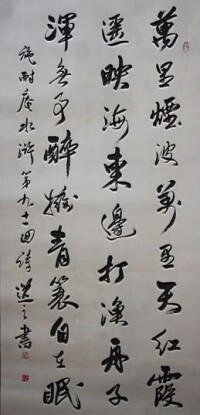 萬里煙波萬里天紅霞
遥映海東邊打漁舟子
渾無事醉擁青蓑自在眠
施耐庵水滸第九十一回詩 之書